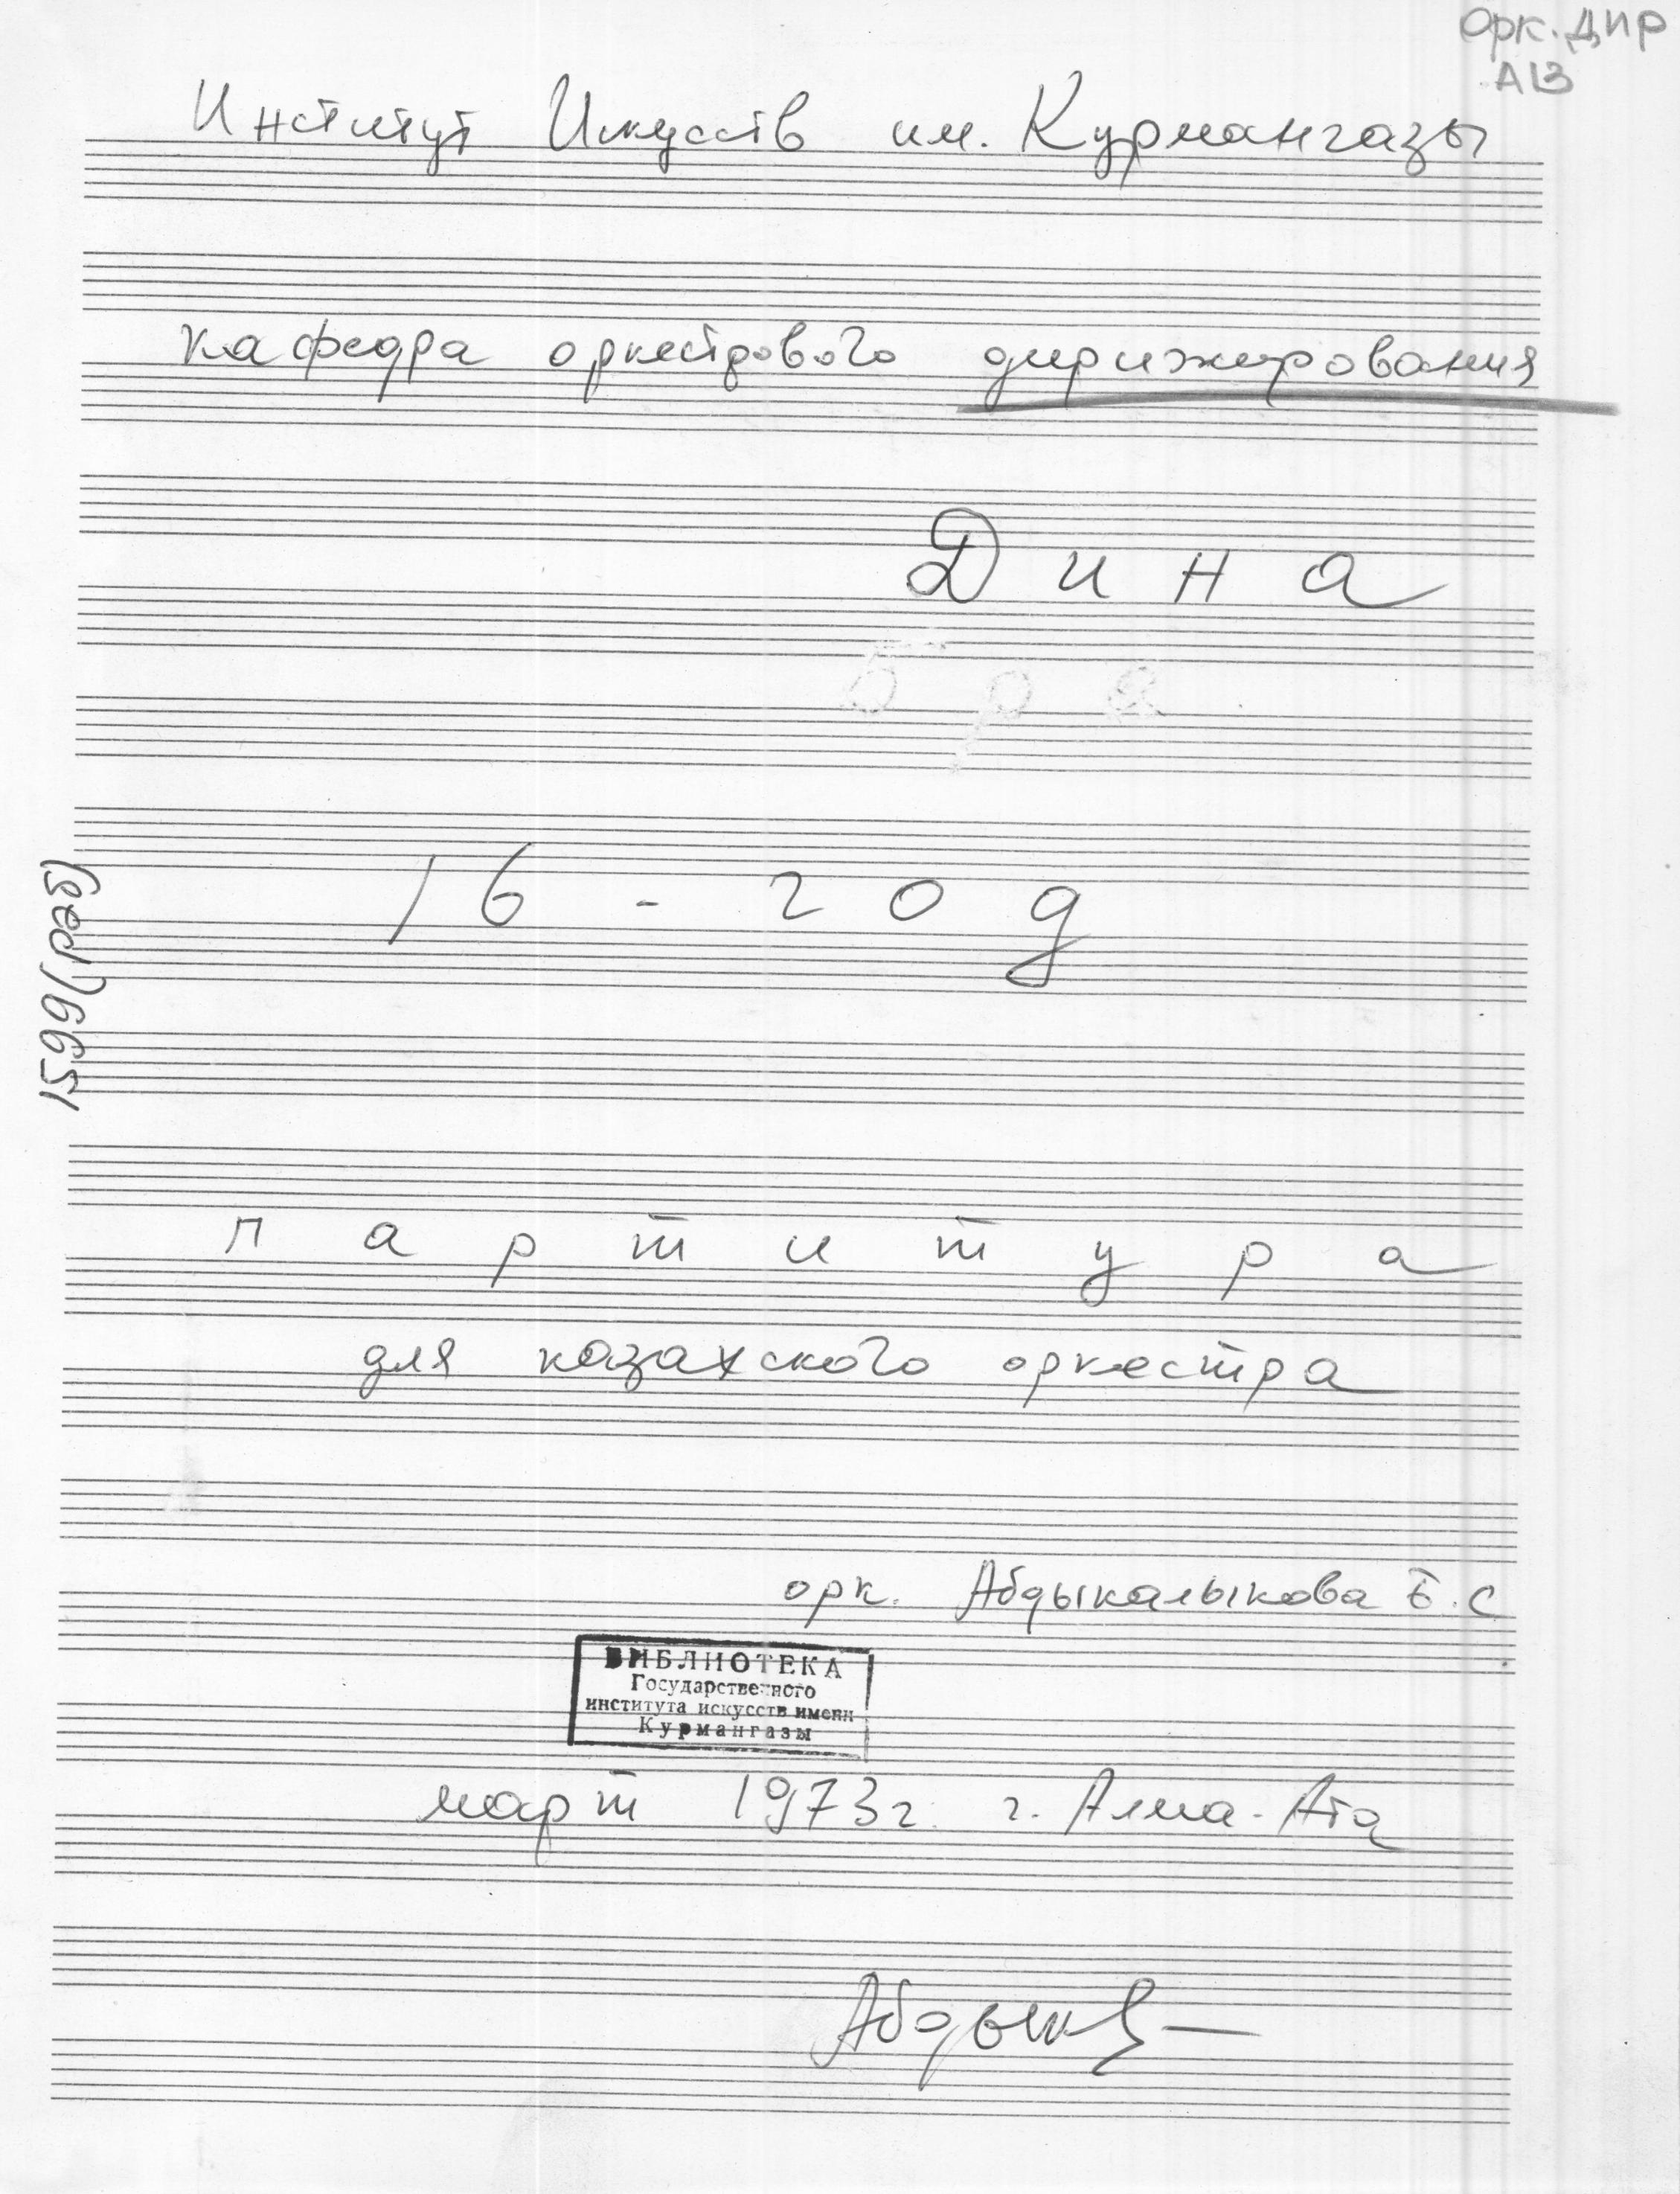 орк. дир
А13
Институт Искусств им. Курмангазы
кафедра оркестрового дирижирования
Дина
16 - год
1599 (раб)
партитура
для казахского оркестра
орк. Абдыкалыкова Б. С
БИБЛИОТЕКА
Государственного
института искусств имени
Курмангазы
март 1973г. г. Алма-Ата